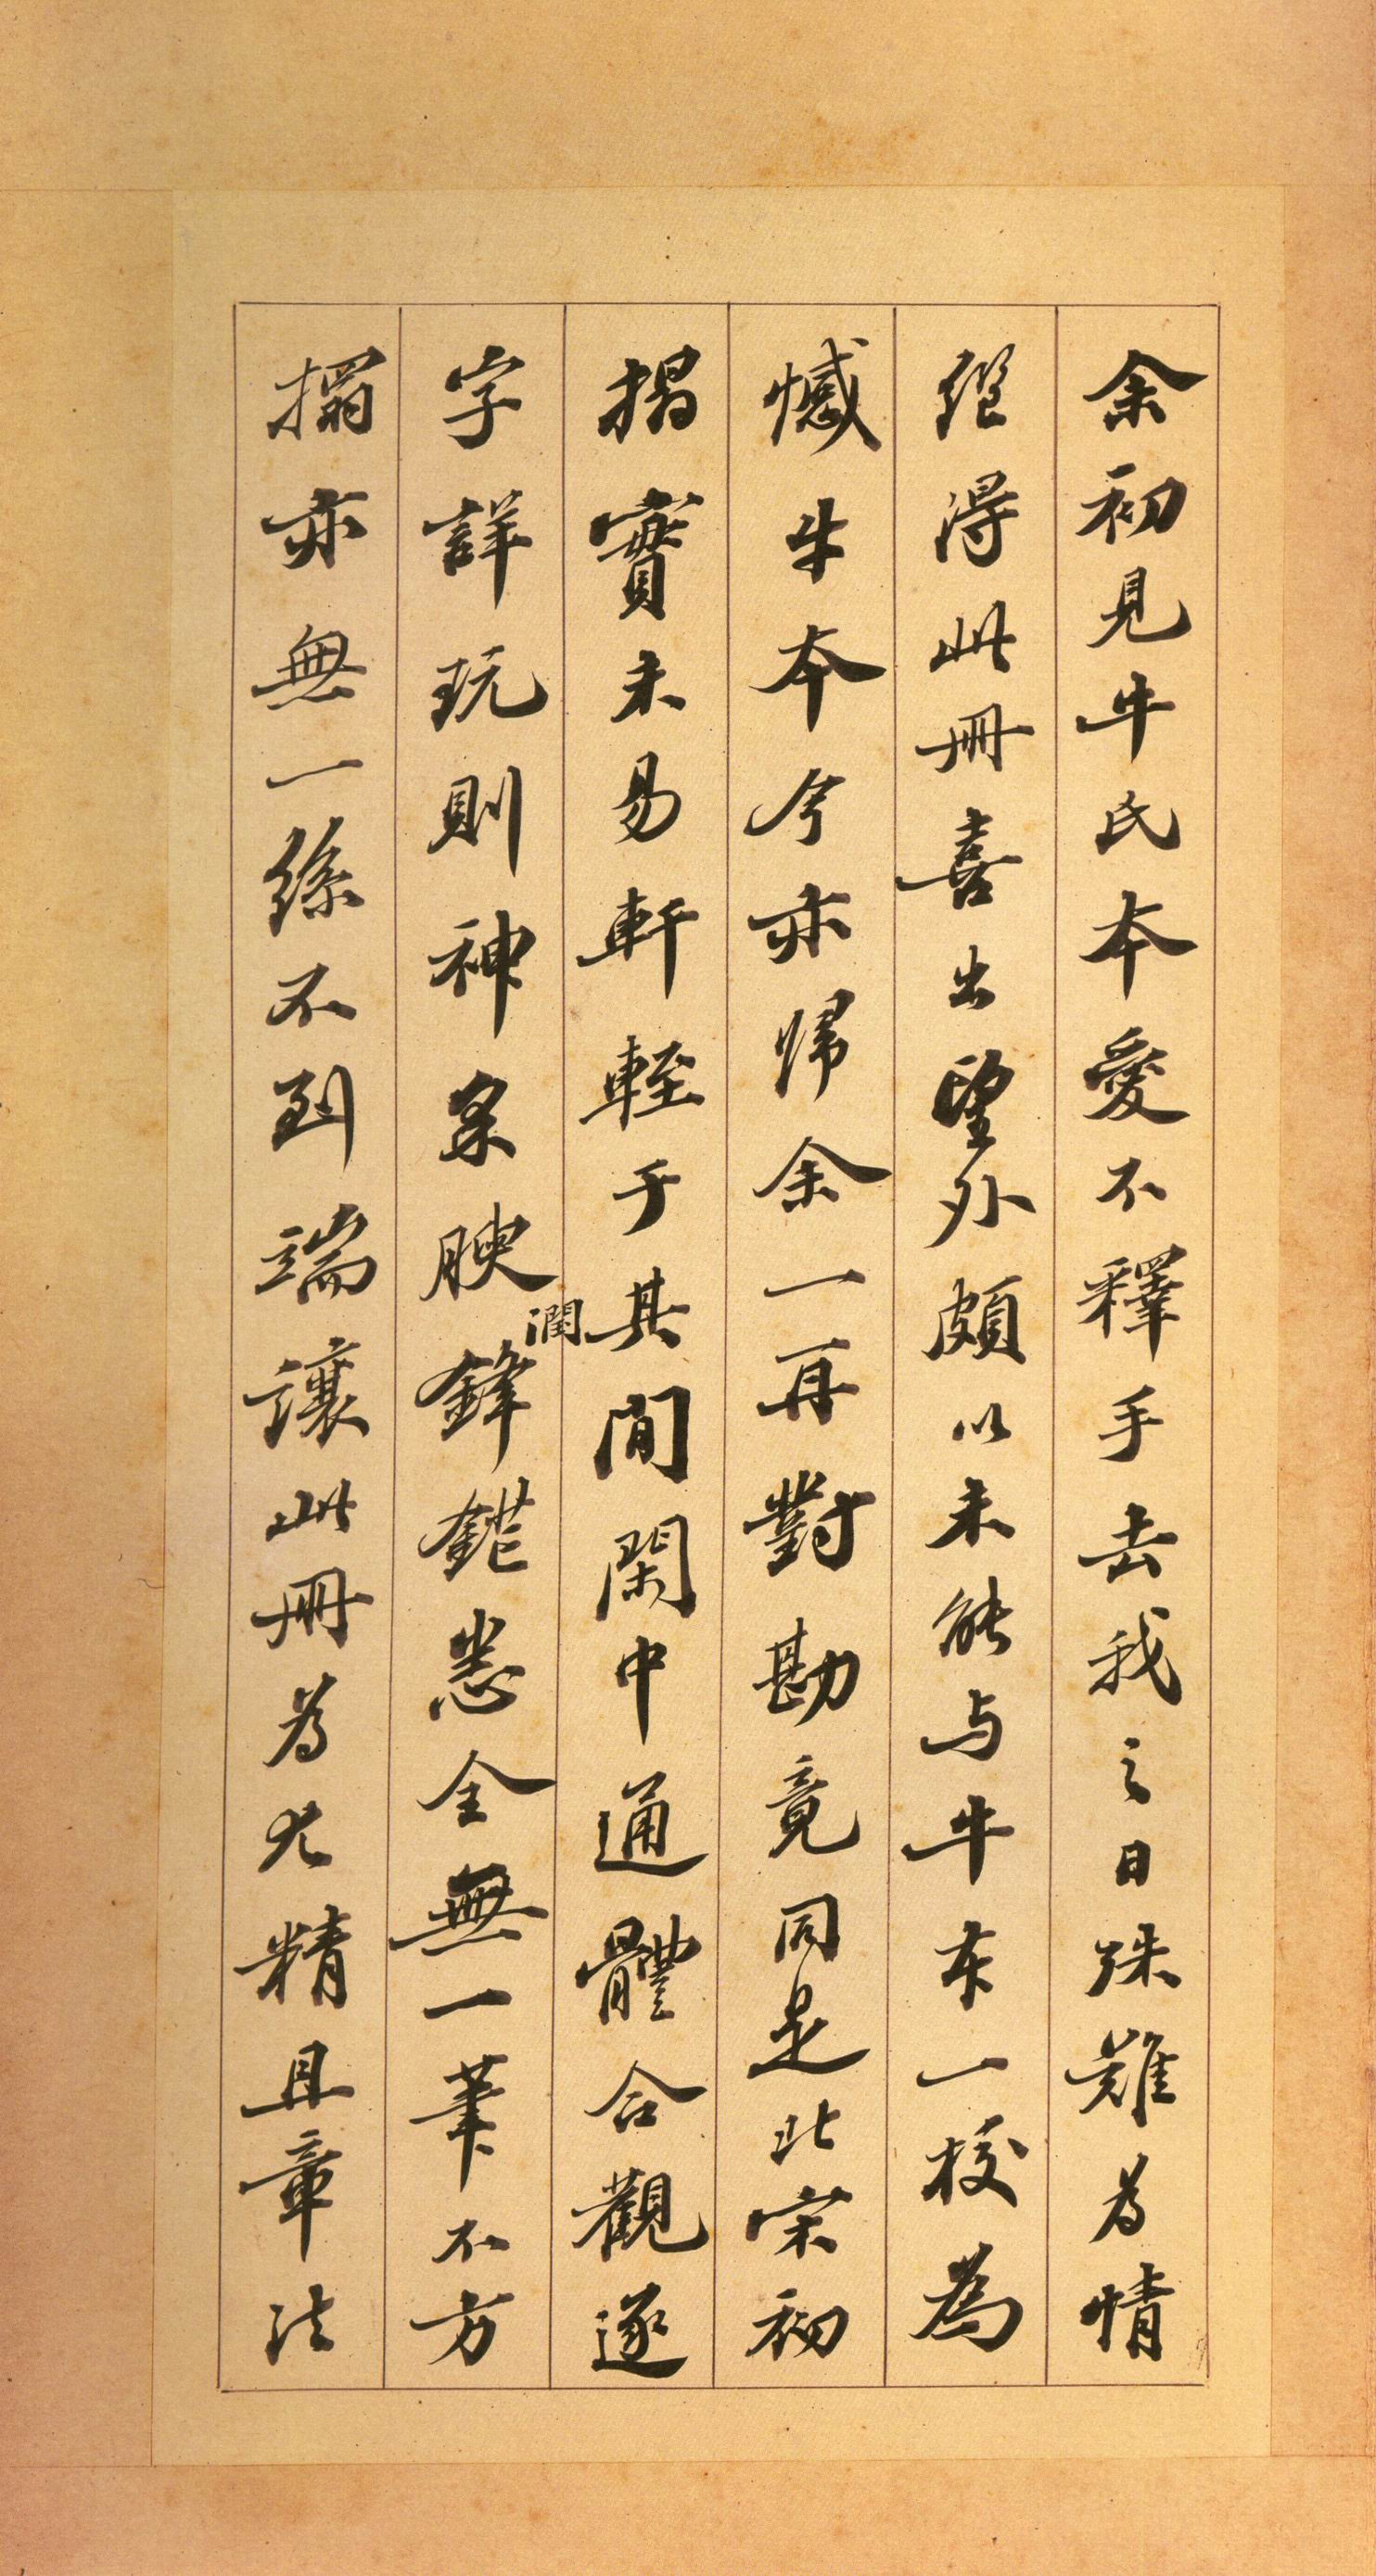 余初見牛氏本愛不釋手去我之日殊難為情
繼得此冊喜出望外頗以未能与牛本一校為
憾牛本今亦歸余一再對勘竟同是北宋初
搨實未易軒輊于其間閑中通體合觀逐
字詳玩則神采腴潤鋒鋩悉全無一筆不方
搨亦無一絲不到端讓此冊為尤精且章法